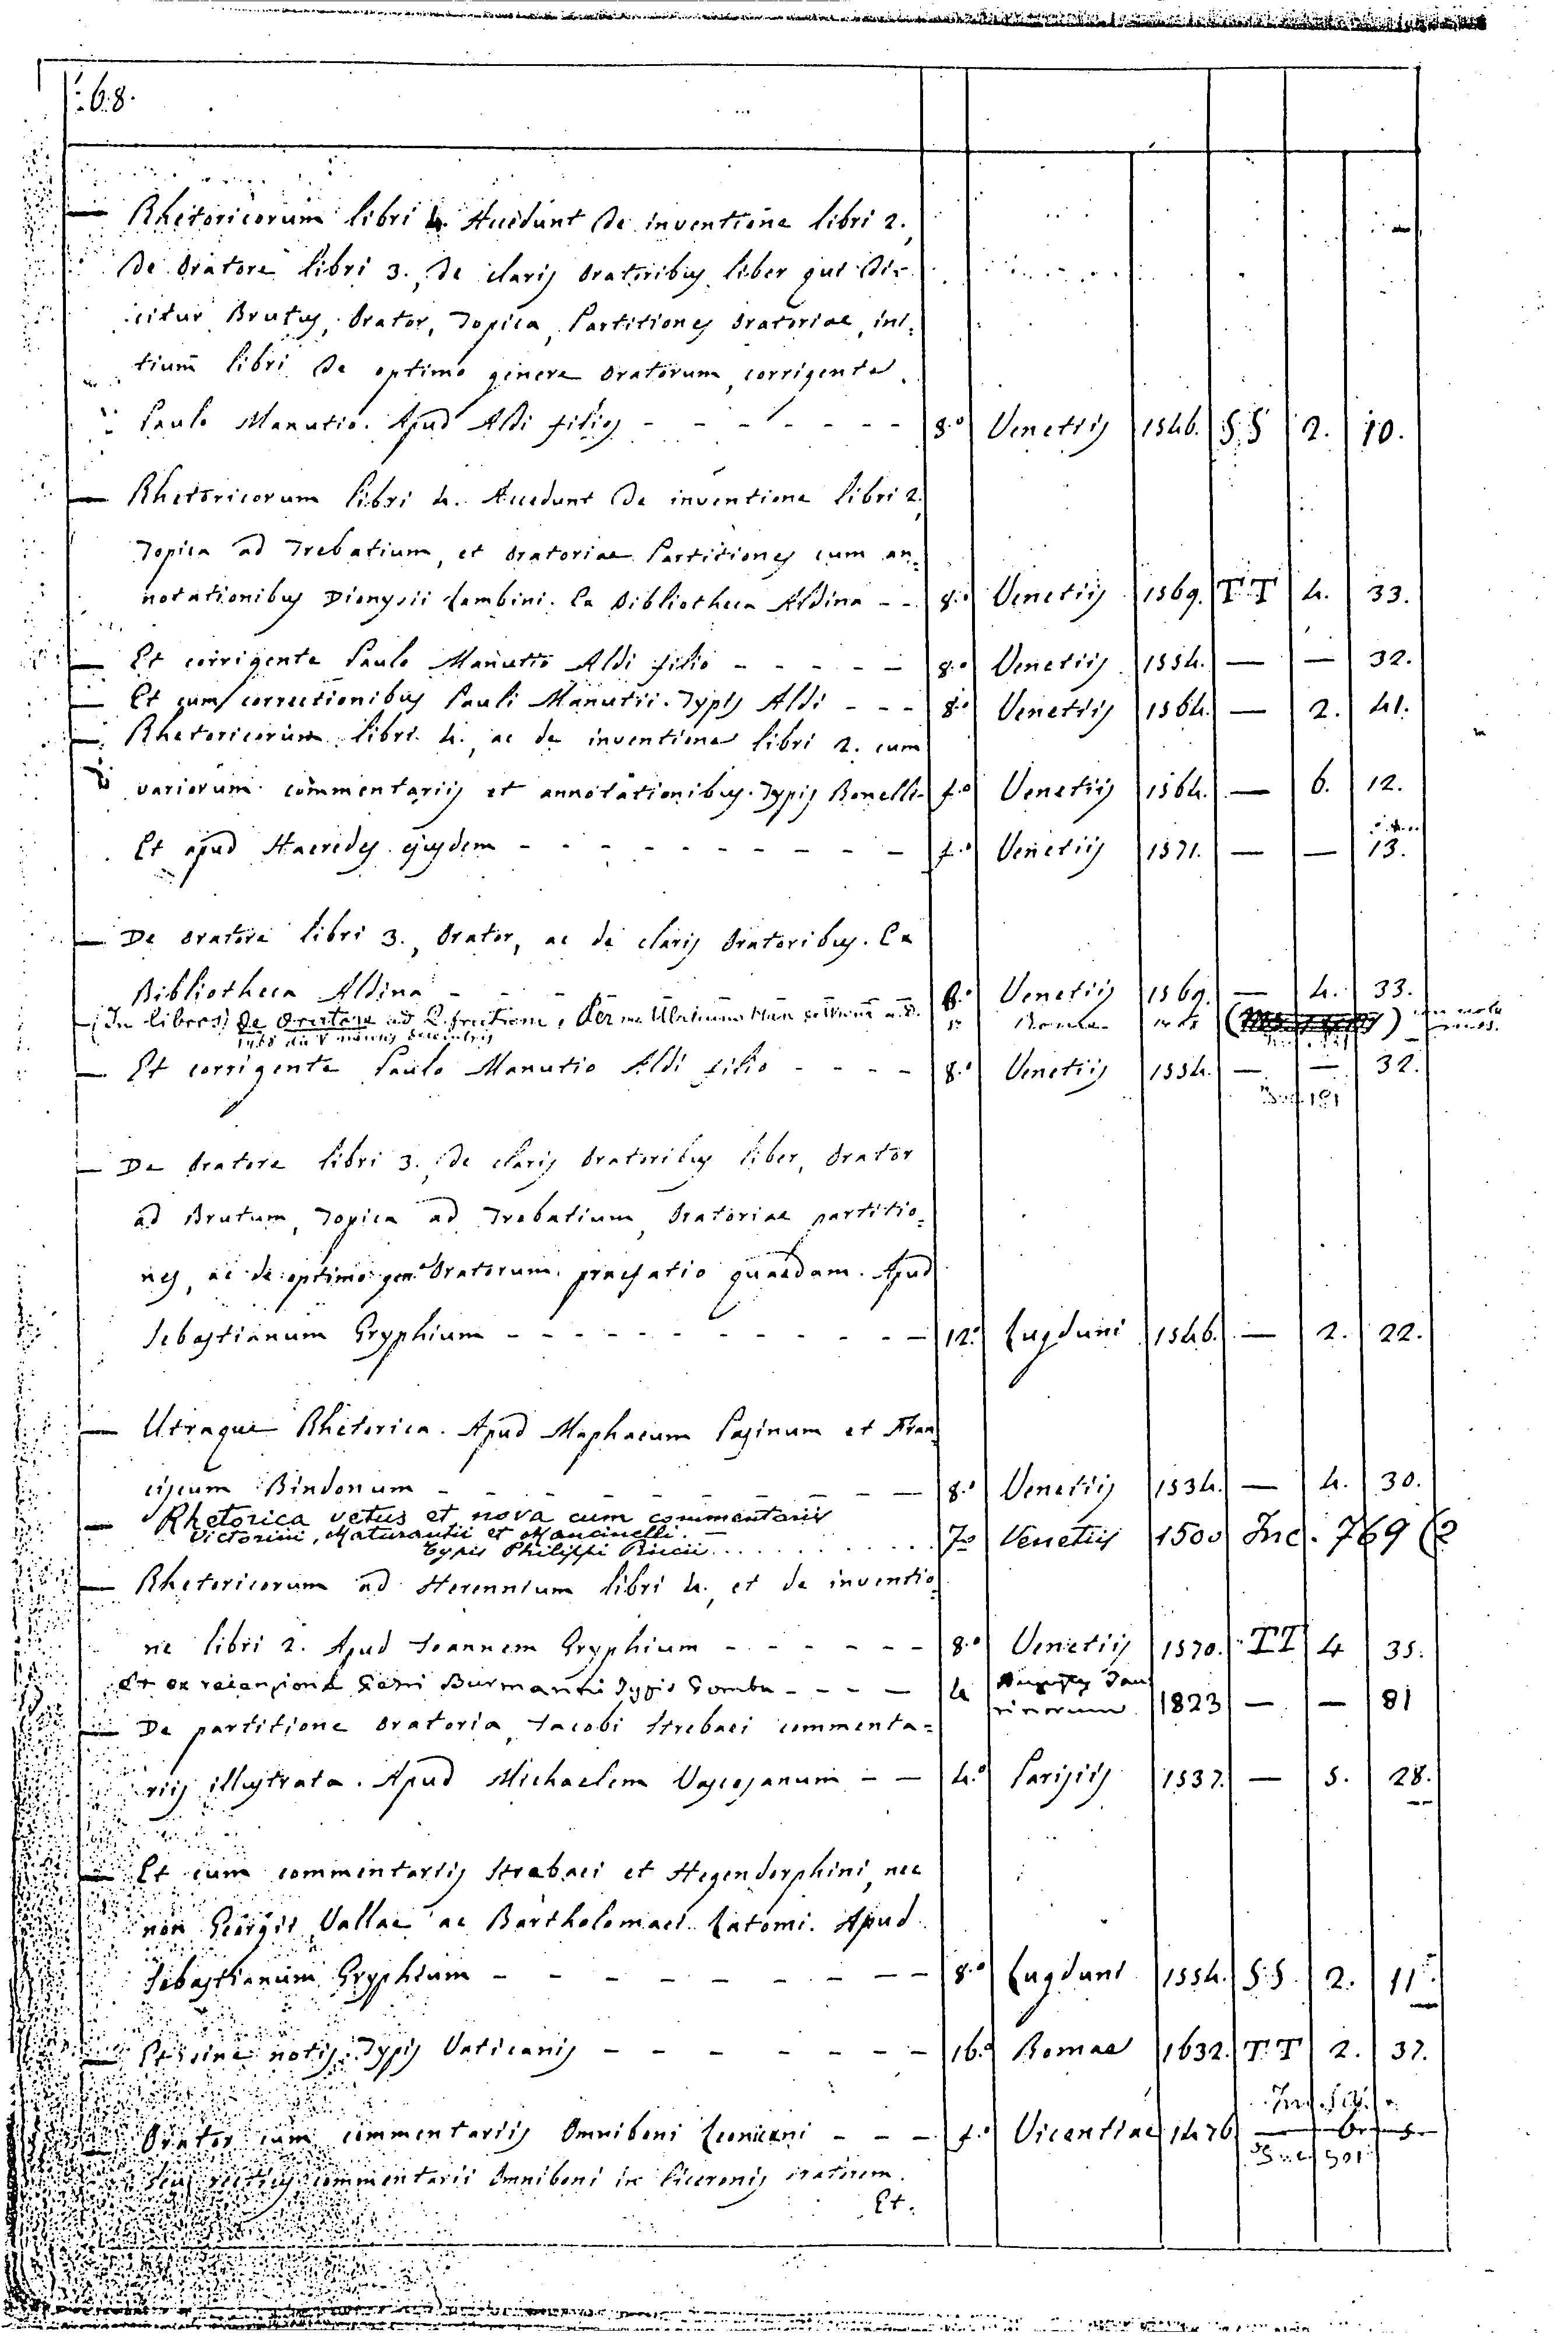 68.
— Rhetoricorum libri 4. Accedunt De inventione libri 2.,
De Oratore libri 3., De claris Oratoribus liber qui di-
citur Brutus, Orator, Topica, Partitiones Oratoriae, ini=
tium libri De optimo genere Oratorum, corrigente
Paulo Manutio. Apud Aldi filios - - - - - - - 8.o Venetiis 1546. S S 2. 10.
— Rhetoricorum libri 4. Accedunt De inventione libri 2.,
Topica ad Trebatium, et Oratoriae Partitiones cum an=
notationibus Dionysii Lambini. Ex Bibliotheca Aldina - - 8.o Venetiis 1569. T T 4. 33.
— Et corrigente Paulo Manutio Aldi filio - - - - - 8.o Venetiis 1554. — — 32.
— Et cum correctionibus Pauli Manutii. Typis Aldi - - - 8.o Venetiis 1564. — 2. 41.
— Rhetoricorum libri 4., ac de inventione libri 2. cum
variorum commentariis et annotationibus. Typis Bonelli- f.o Venetiis 1564. — 6. 12.
Et apud Haeredes ejusdem - - - - - - - - - - f.o Venetiis 1571. — — 13.
— De oratore libri 3., Orator, ac de claris Oratoribus. Ex
Bibliotheca Aldina - - - - - - - - - 8.o Venetiis 1569. — 4. 33.
— (In libros) De Oratore ad Q. fratrem, Per me Ulricum Han
— Et corrigente Paulo Manutio Aldi filio - - - - 8.o Venetiis 1554. — — 32.
— De Oratore libri 3., De claris Oratoribus liber, Orator
ad Brutum, Topica ad Trebatium, Oratoriae partitio=
nes, ac de optimo gen.e Oratorum praefatio quaedam. Apud
Sebastianum Gryphium - - - - - - - - - - - 12.o Lugduni 1546. — 2. 22.
— Utraque Rhetorica. Apud Maphaeum Pasinum et Fran=
ciscum Bindonum - - - - - - - - - 8.o Venetiis 1534. — 4. 30.
— Rhetorica vetus et nova cum commentariis
Victorini, Maturantii et Mancinelli. —
Typis Philippi Pincii . . . . . . . . . . . fo Venetiis 1500 Inc. 769 (2
— Rhetoricorum ad Herennium libri 4., et de inventio=
ne libri 2. Apud Joannem Gryphium - - - - - - 8.o Venetiis 1570. TT 4 35.
Et ex recensione Petri Burmanni Typis Pomba - - - - 4 Augustae Tau
rinorum 1823 — — 81
— De partitione Oratoria, Jacobi Strebaei commenta=
riis illustrata. Apud Michaelem Vascosanum - - 4.o Parisiis 1537. — 5. 28.
— Et cum commentariis Strebaei et Hegendorphini, nec
non Georgii Vallae ac Bartholomaei Latomi. Apud
Sebastianum Gryphium - - - - - - - - - 8.o Lugduni 1554. S S. 2. 11.
— Et sine notis. Typis Vaticanis - - - - - - - 16.o Romae 1632. T T 2. 37.
Orator cum commentariis Omniboni Leoniceni - - - f.o Vicentiae 1476
Seu rectius commentarii Omniboni in Ciceronis oratorem. Inc. 501
Et.